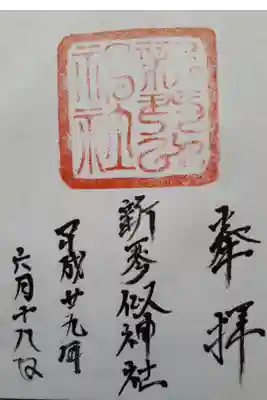 奉拝
新琴似神社
平成廿九年
六月十九日